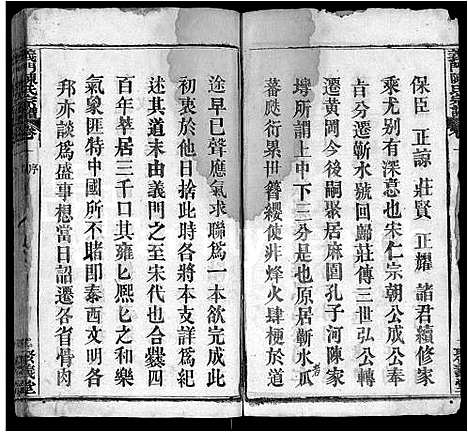 保臣 正諒 莊賢 正耀 諸君續修家
乘尤別有深意也宋仁宗朝公成公奉
旨分遷蘄水號回歸莊傳三世弘公轉
遷黃岡今後嗣聚居麻園孔子河陳家
塆所謂上中下三分是也原居蘄水瓜
蕃衍累世簪纓徒非烽火肆梗於道
途早已聲應氣求聯為一本欲完成此
初衷於他日此時各將本支詳為紀
述其道末由義門之至宋代也合爨四
百年萃居三千口其雍雍熙熙之和樂
氣象匪特中國所不睹即泰西文明之
邦亦談為盛事想當日詔遷各省骨肉
義門陳氏宗譜
卷一
序
聚義堂